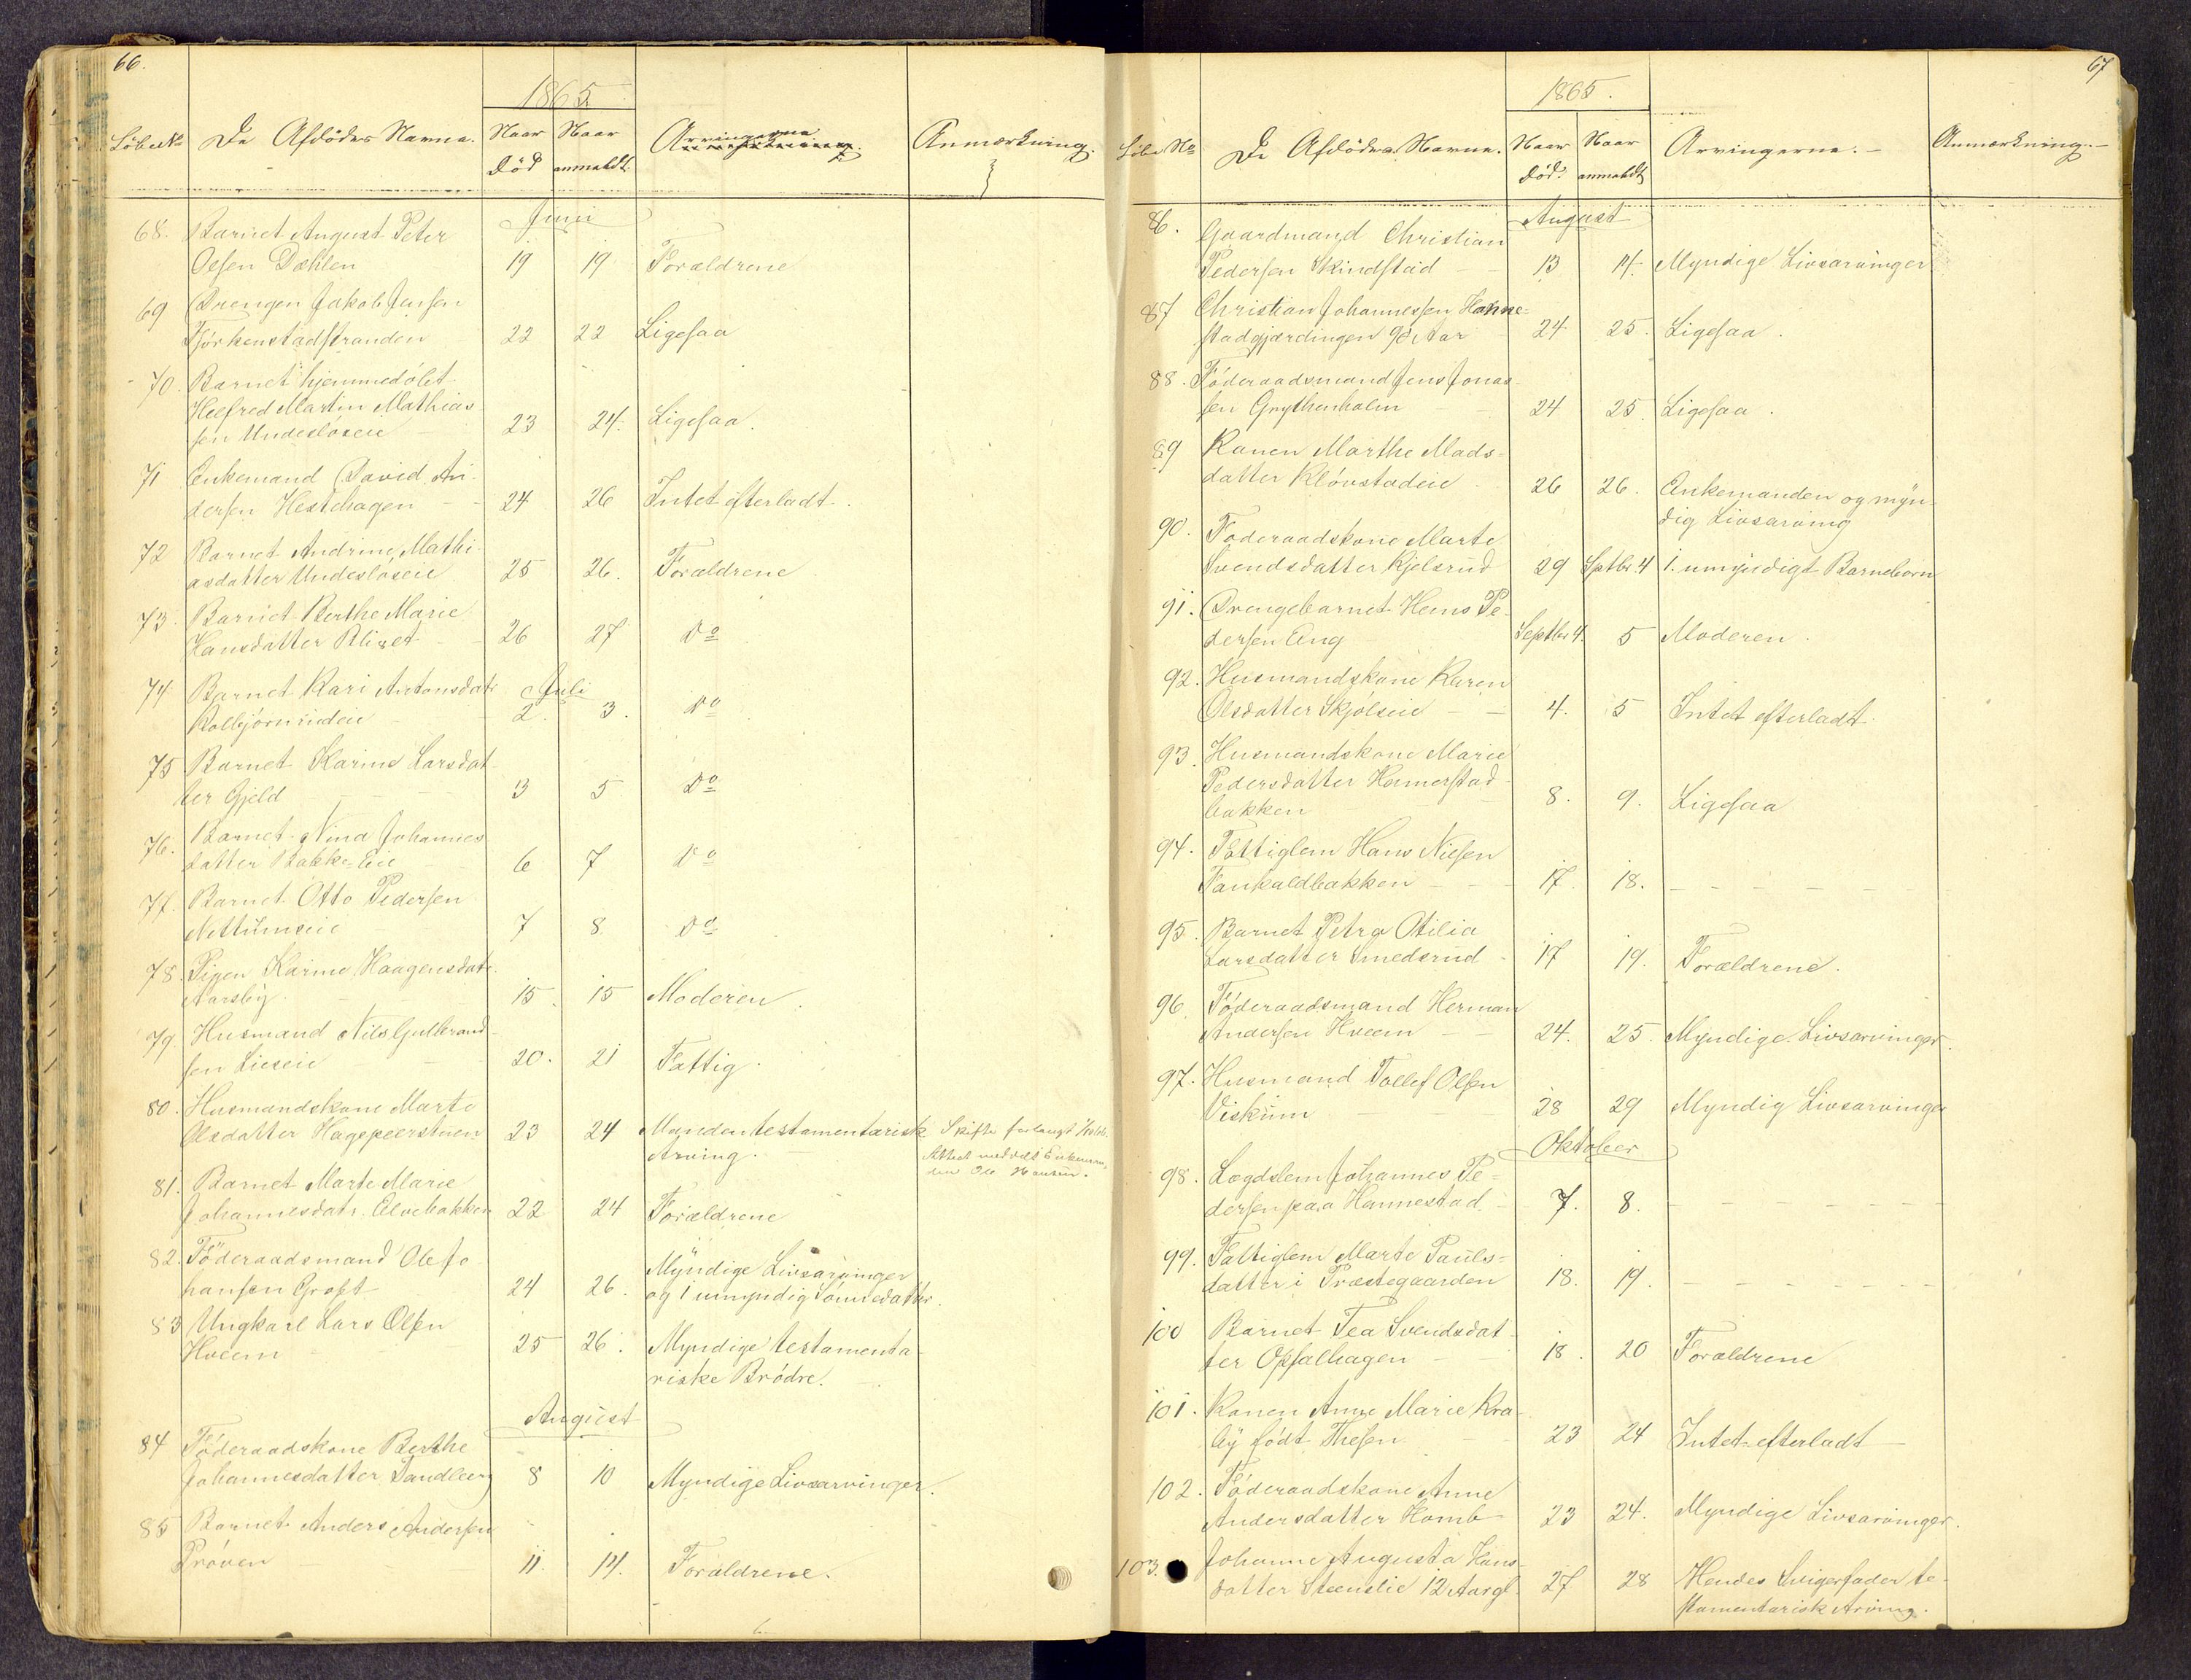 66.
1865
Löbe No De Afdödes Navne. Naar Död Naar anmeldt. Arvingerne Anmærkning.
Juni
68. Barnet August Peter
Olsen Dæhlen 19 19 Forældrene
69 Drengen Jakob Jensen
22 22 Ligesaa
70. Barnet hjemmedöbt
Helfred Martin Mathias-
sen Undeslöseie 23 24. Ligesaa.
71 Enkemand David An-
dersen Hestehagen 24 26 Intet efterladt.
72 Barnet Andrine Mathi-
asdatter Undeslöseie 25 26. Forældrene
73. Barnet Berthe Marie
Hansdatter 26 27 Do
74 Barnet Kari Antonsdatr Juli
Kolbjörnrudeie 2. 3. Do
75 Barnet Karine Larsdat-
ter Gjeld 3 5 Do
76. Barnet Nina Johannes
datter Bakke-Eie 6 7 Do
77. Barnet Otto Pedersen
Nettumseie 7 8. Do
78. Pigen Karine Haagensdatr.
Aarsby. 15. 15 Moderen.
79. Husmand Nils Gulbrand-
sen Lieseie 20. 21 Fattig.
80. Husmandskone Marte
Olsdatter Hagepeerstuen 23 24 Manden testamentarisk Skifte forlangt
Arving. Attest meddelt Enkeman-
den Ole Hansen.
81. Barnet Marte Marie
Johannesdatr. Elvebakken 22 24 Forældrene
82. Föderaadsmand Ole Jo-
hansen Groft 24 26. Myndige Livsarvinger
og 1 umyndig Sönnedatter.
83 Ungkarl Lars Olsen
Hveem 25 26. Myndige testamenta-
riske Brödre.
August
84 Föderaadskone Berthe
Johannesdatter Sandberg 8 10 Myndige Livsarvinger.
85 Barnet Anders Andersen
Pröven 11. 14. Forældrene.
67
1865.
Löbe No De Afdödes Navne. Naar Död. Naar anmeldt Arvingerne. Anmærkning.
August
86. Gaardmand Christian
Pedersen Skindstad 13 14. Myndige Livsarvinger
87 Christian Johannessen Hanne-
stadgjærdingen 90 Aar 24 25. Ligesaa.
88. Föderaadsmand Jens Jonas-
sen Grythenholm 24 25. Ligesaa.
89 Konen Marthe Mads-
datter Klövstadeie 26 26. Enkemanden og myn-
dig Livsarving
90. Foderaadskone Marte
Svendsdatter Kjelsrud 29 Septbr. 4 1. umyndigt Barnebarn
91. Drengebarnet Hans Pe-
dersen Eng Septbr 4. 5 Moderen.
92. Husmandskone Karen
Olsdatter Skjölseie 4. 5 Intet efterladt.
93. Husmandskone Marie
Pedersdatter Hamerstad-
bakken 8. 9. Ligesaa
94. Fattiglem Hans Nilsen
Fankaldbakken 17. 18.
95. Barnet Petra Otilia
Larsdatter Smedsrud 17 19. Forældrene.
96. Föderaadsmand Herman
Andersen Hveem 24. 25. Myndige Livsarvinger.
97. Husmand Tollef Olsen
Viskum 28 29 Myndig Livsarvinger
Oktober
98. Lægdslem Johannes Pe-
dersen paa Hannestad 7. 8.
99. Fattiglem Marte Pauls-
datter i Præstegaarden 18. 19.
100 Barnet Tea Svendsdat-
ter Opsalhagen 18. 20 Forældrene
101. Konen Anne Marie Kra-
by födt Thesen 23 24 Intet efterladt
102. Föderaadskone Anne
Andersdatter Homb 23 24. Myndige Livsarvinger.
103. Johanne Augusta Hans-
datter Steenslie 12 Aar gl. 27 28 Hendes Svigerfader te-
stamentarisk Arving.